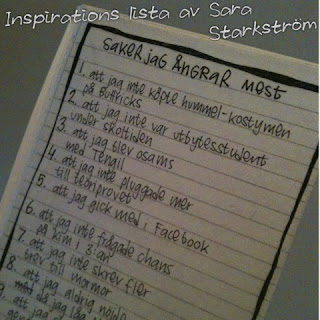 Inspirations lista av Sara
Starkström
SAKER JAG ÅNGRAR MEST
1. att jag inte köpte hummel-kostymen
på Buttricks
2. att jag inte var utbytesstudent
under skoltiden
3. att jag blev osams
med Tengil
4. att jag inte pluggade mer
till teoriprovet
5. att jag gick med i Facebook
6. att jag inte frågade chans
på Kim i 3:an
7. att jag inte skrev fler
brev till mormor
8. att jag aldrig höjde
med då jag låg